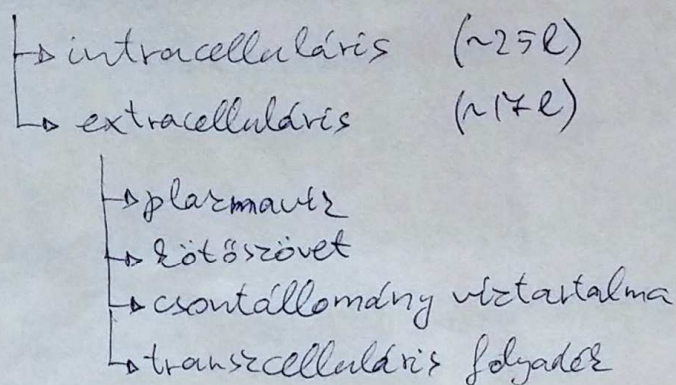 intracelluláris (~25 l)
extracelluláris (~17 l)
plazmavíz
kötőszövet
csontállomány víztartalma
transzcelluláris folyadék